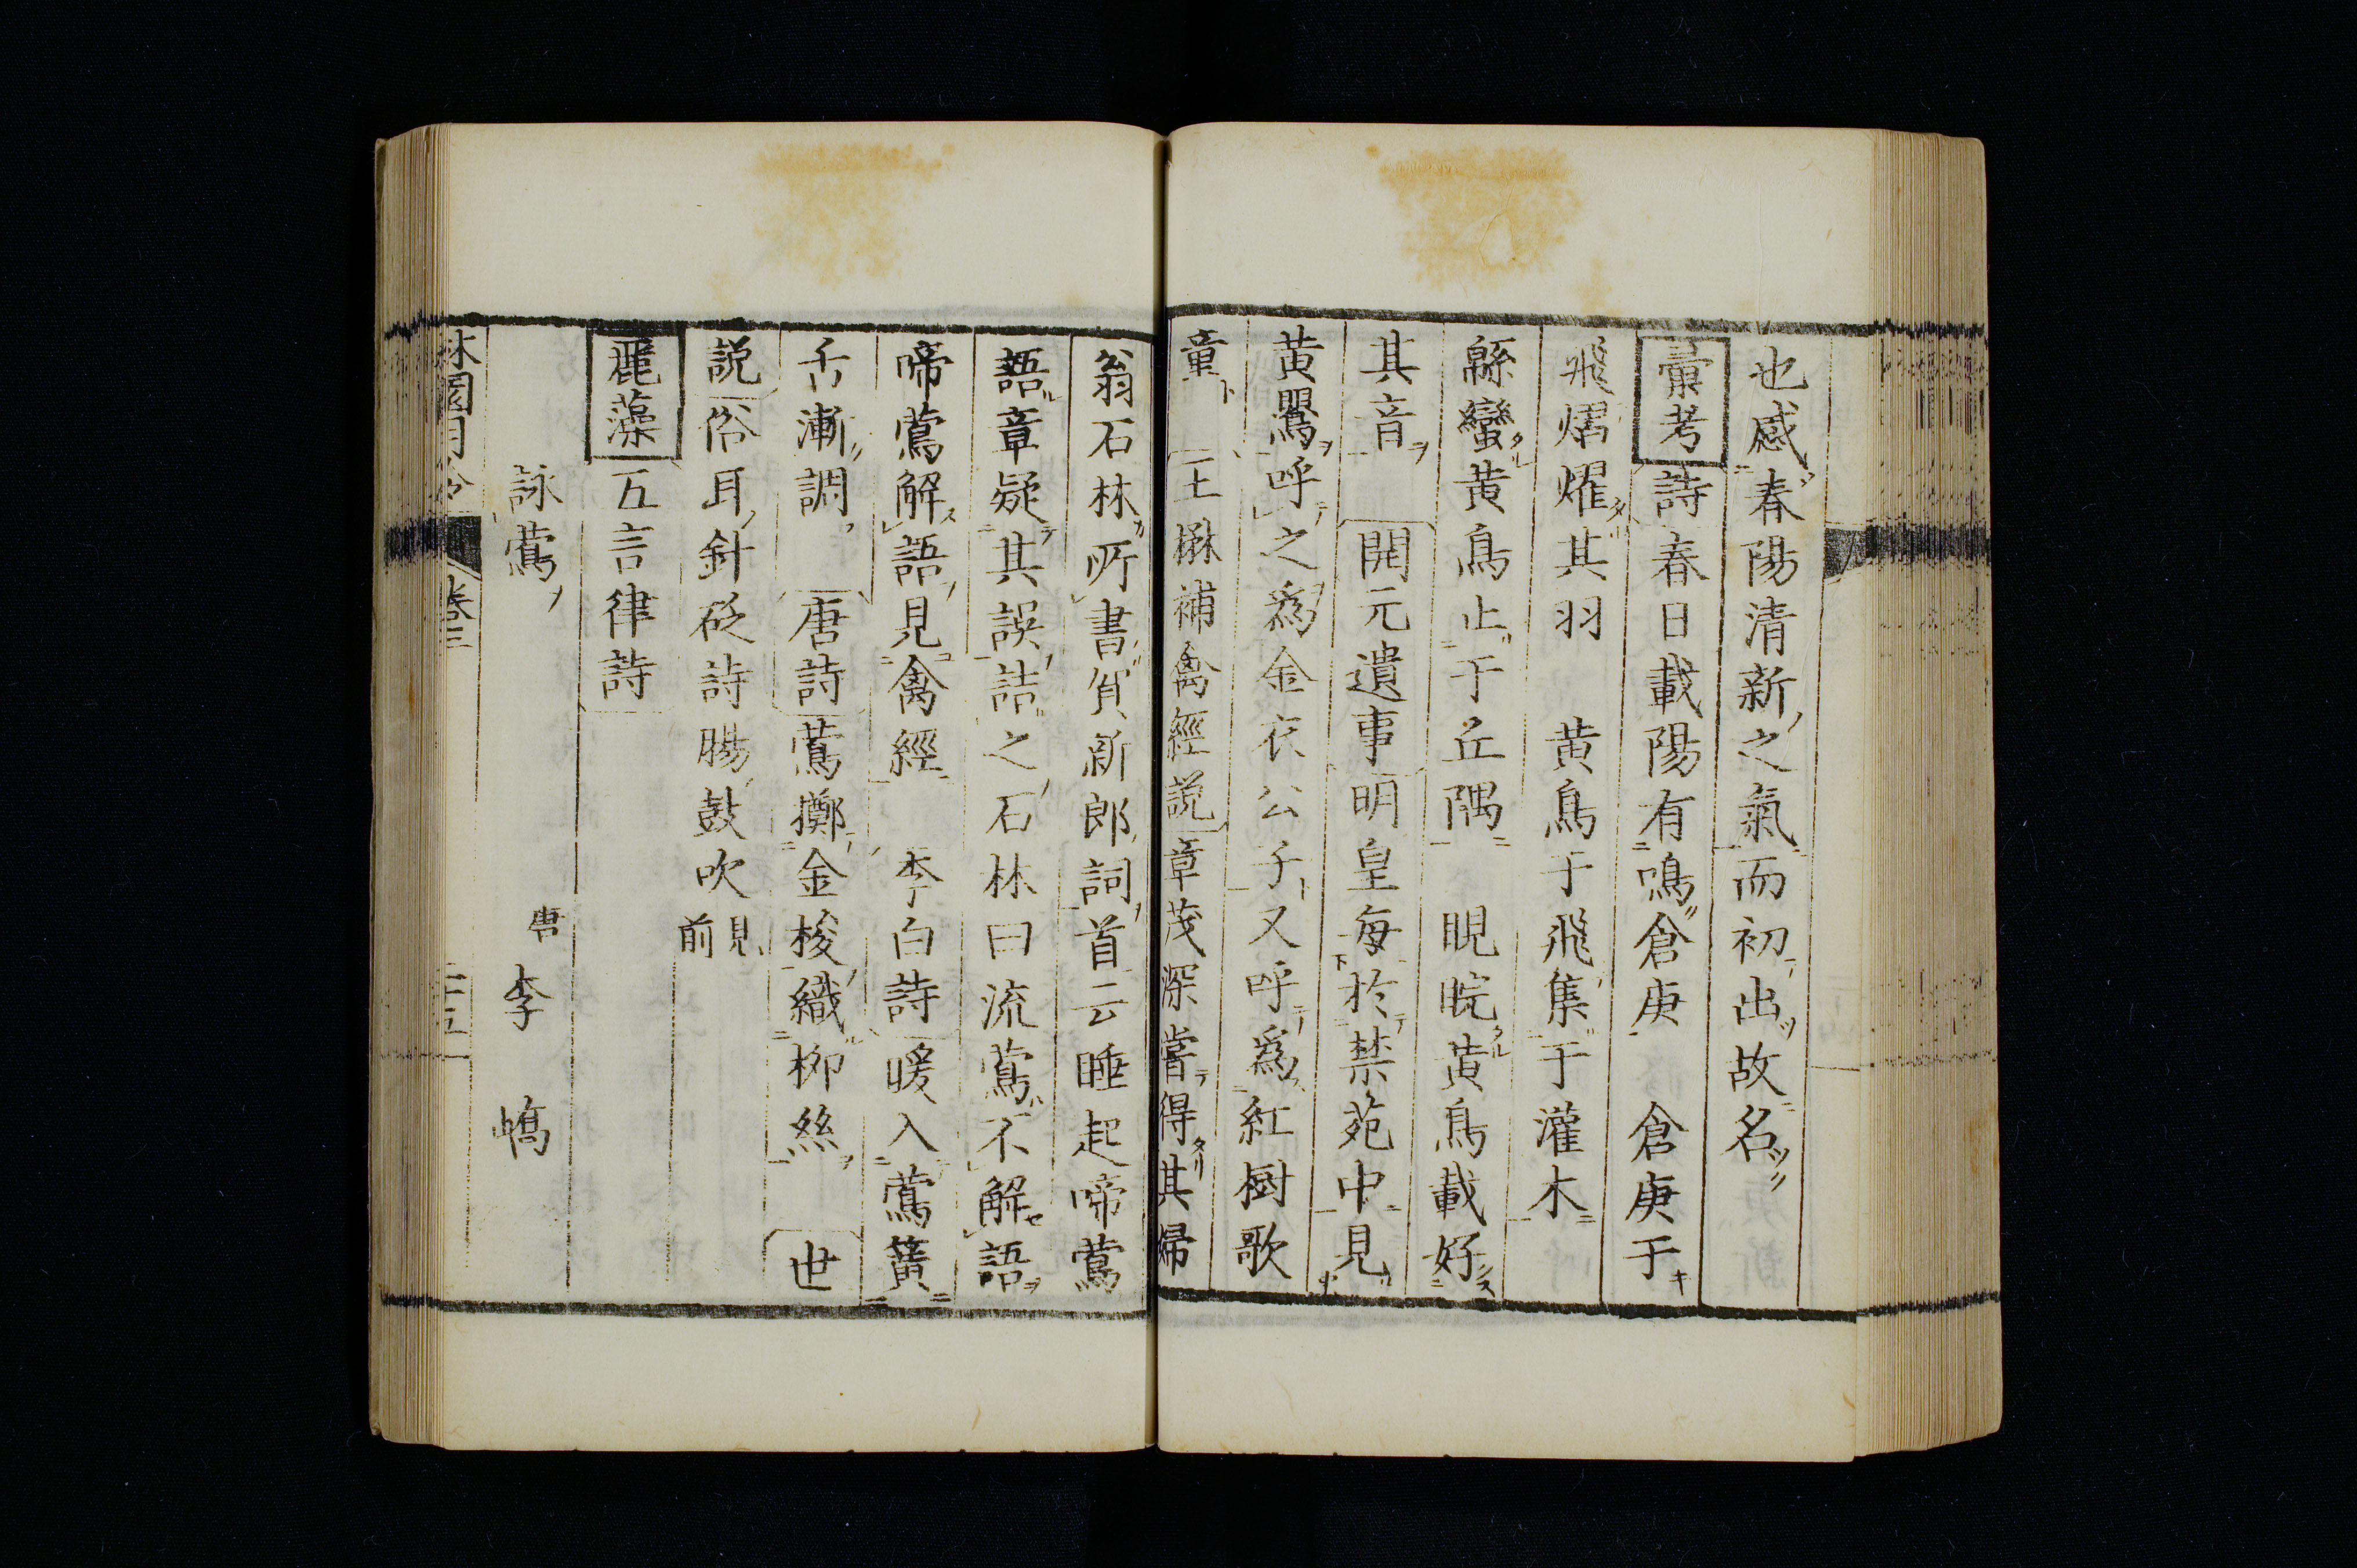 也感春陽清新之氣而初出故名
彙考詩春日載陽有鳴倉庚　倉庚于
飛熠燿其羽　黄鳥于飛集于灌木
緜蠻黄鳥止于丘隅　睍睆黄鳥載好
其音　開元遺事明皇毎於禁苑中見
黄鸎呼之爲金衣公子又呼爲紅樹歌
童　王楙補禽經説章茂深嘗得其婦
翁石林所書賀新郎詞首云睡起啼鶯
語章疑其誤詰之石林曰流鶯不解語
啼鶯解語見禽經　李白詩暖入鶯簧
舌漸調　唐詩鶯擲金梭織柳絲　世
説俗耳針砭詩腸鼓吹見前
麗藻五言律詩
詠鶯　唐　李　嶠
卷三